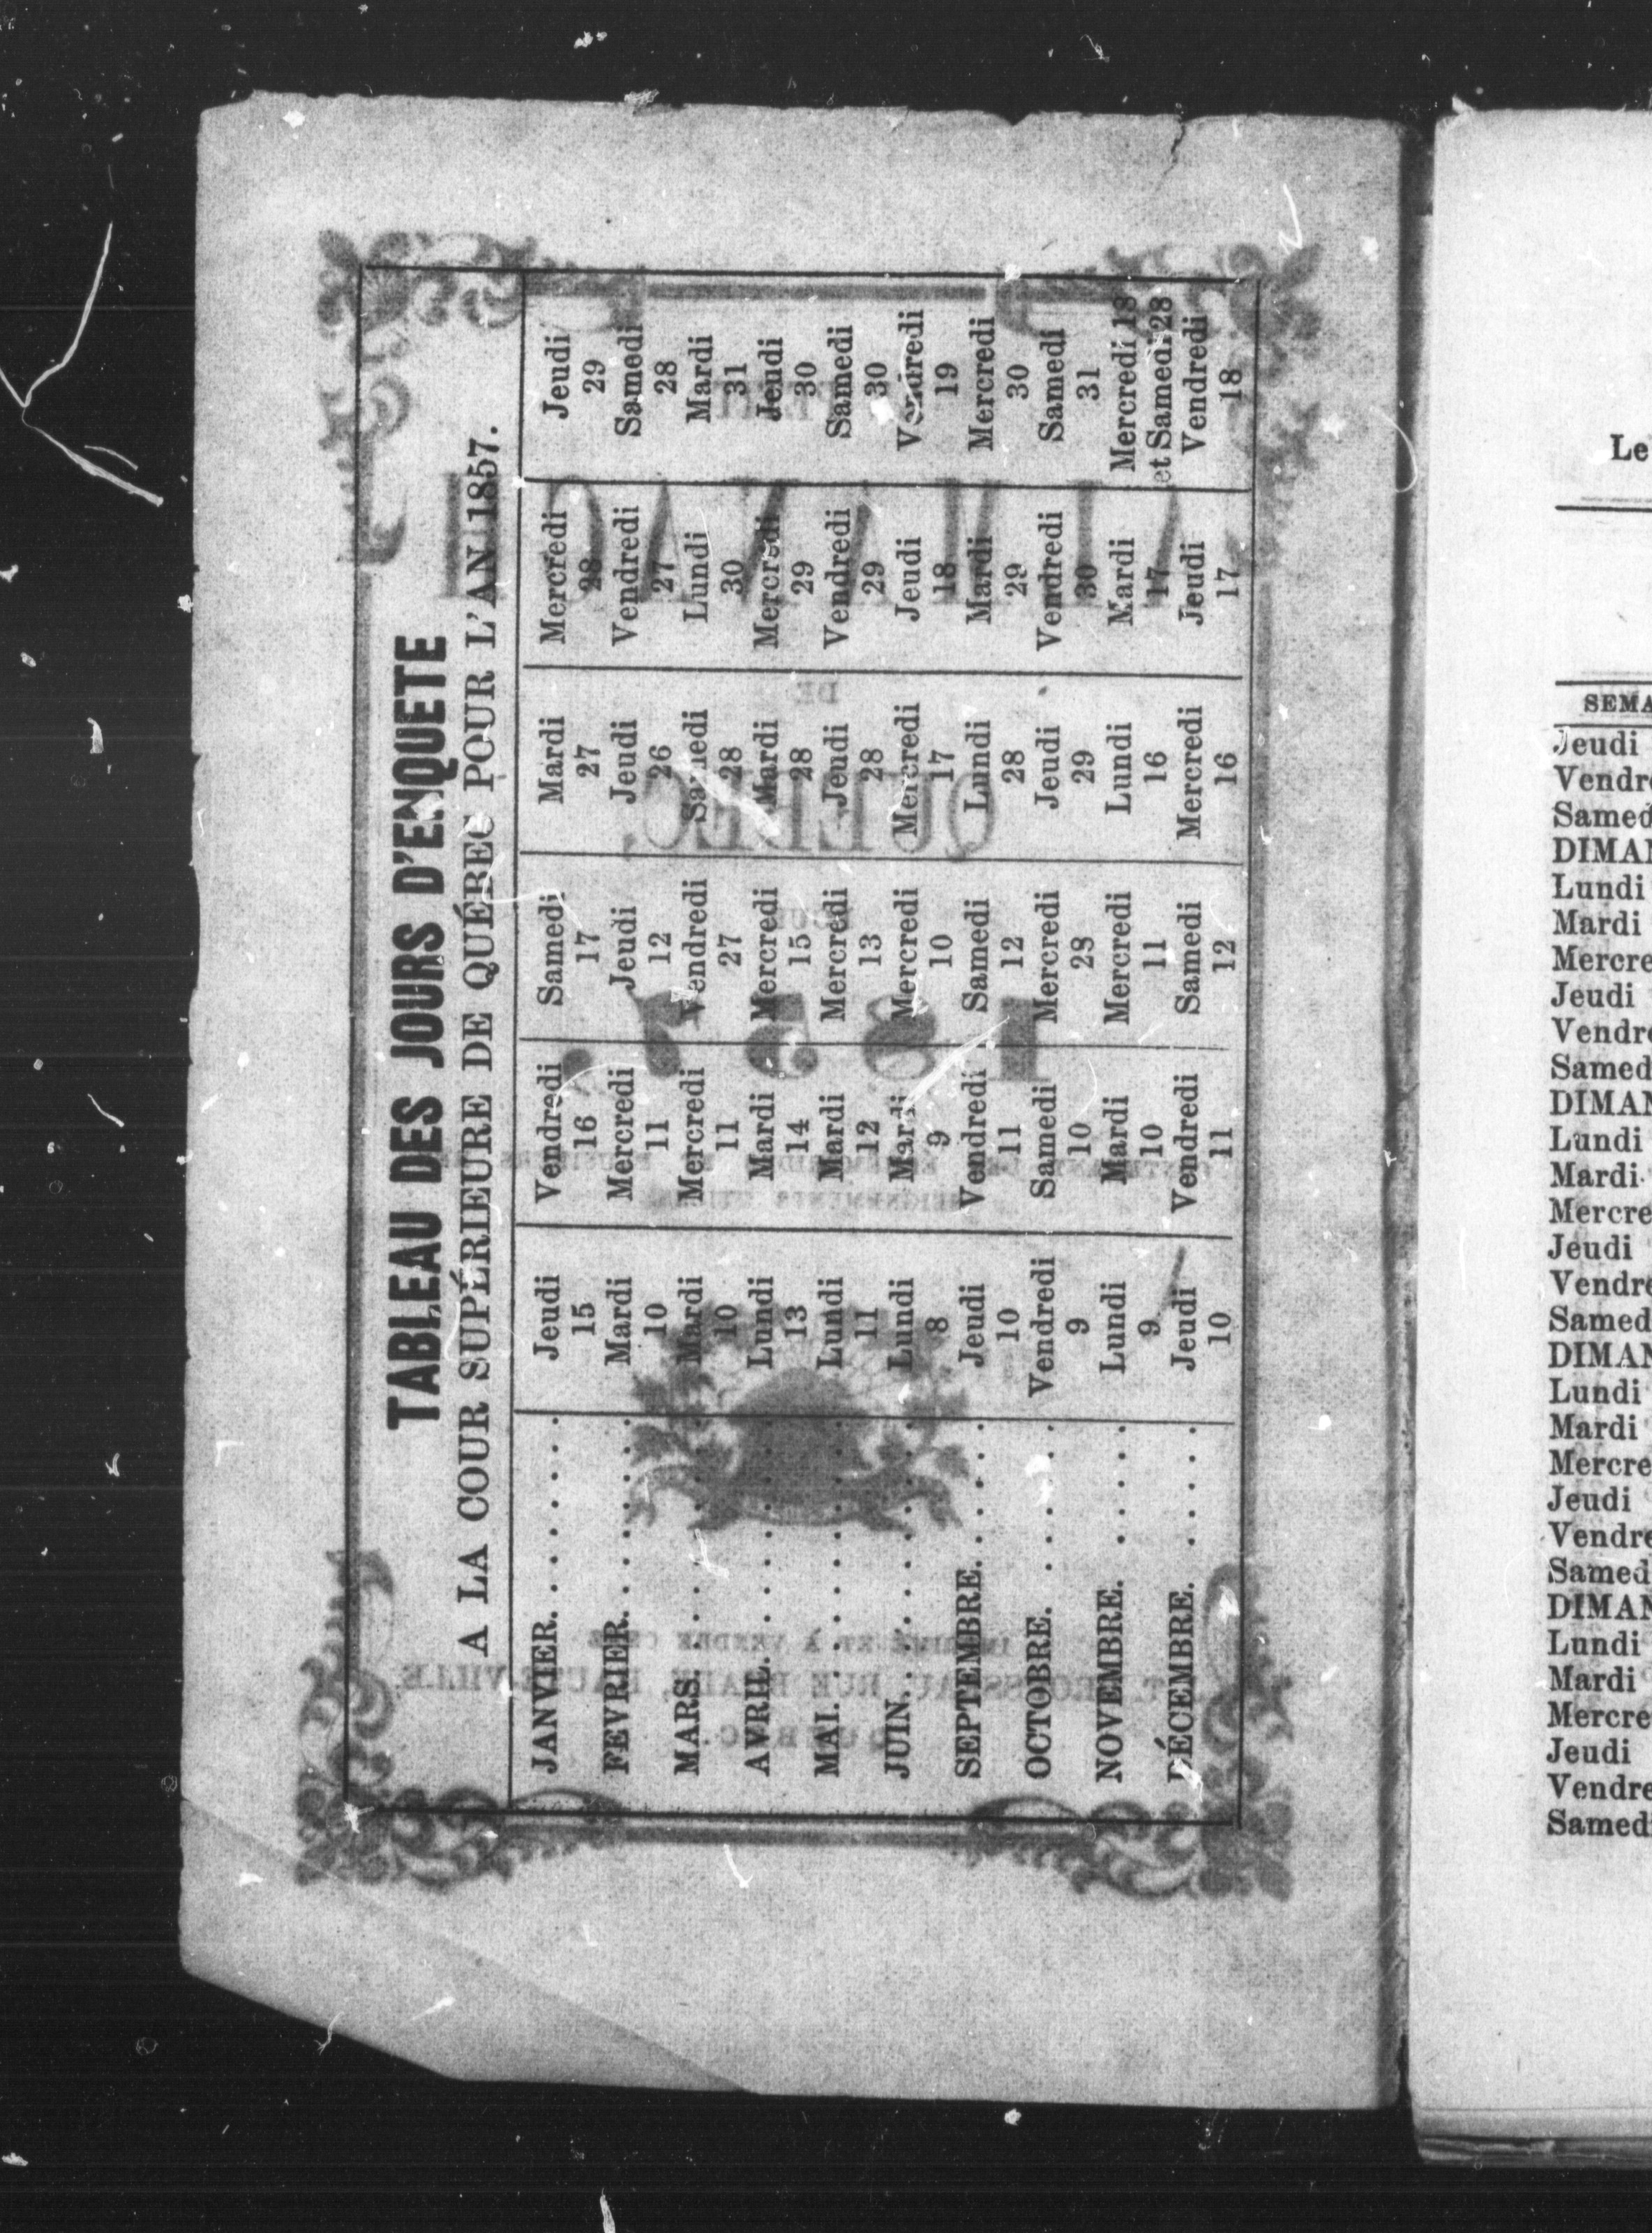 TABLEAU DES JOURS D'ENQUETE
A LA COUR SUPÉRIEURE DE QUÉBEC POUR L'AN 1857.
JANVIER. Jeudi 15 Vendredi 16 Samedi 17 Mardi 27 Mercredi 28 Jeudi 29
FEVRIER. Mardi 10 Mercredi 11 Jeudi 12 Jeudi 26 Vendredi 27 Samedi 28
MARS. Mardi 10 Mercredi 11 Vendredi 27 Samedi 28 Lundi 30 Mardi 31
AVRIL. Lundi 13 Mardi 14 Mercredi 15 Mardi 28 Mercredi 29 Jeudi 30
MAI. Lundi 11 Mardi 12 Mercredi 13 Jeudi 28 Vendredi 29 Samedi 30
JUIN. Lundi 8 Mardi 9 Mercredi 10 Mercredi 17 Jeudi 18 Vendredi 19
SEPTEMBRE. Jeudi 10 Vendredi 11 Samedi 12 Lundi 28 Mardi 29 Mercredi 30
OCTOBRE. Vendredi 9 Samedi 10 Mercredi 28 Jeudi 29 Vendredi 30 Samedi 31
NOVEMBRE. Lundi 9 Mardi 10 Mercredi 11 Lundi 16 Mardi 17 Mercredi 18 et Samedi 28
DÉCEMBRE. Jeudi 10 Vendredi 11 Samedi 12 Mercredi 16 Jeudi 17 Vendredi 18
Le
SEMA
Jeudi
Vendre
Samed
DIMAN
Lundi
Mardi
Mercre
Jeudi
Vendre
Samed
DIMAN
Lundi
Mardi
Mercre
Jeudi
Vendre
Samed
DIMAN
Lundi
Mardi
Mercre
Jeudi
Vendre
Samed
DIMAN
Lundi
Mardi
Mercre
Jeudi
Vendre
Samedi